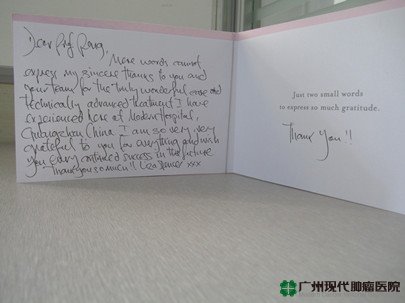 Dear Prof
More words cannot
express my sincere thanks to you and
your team for the truly wonderful care and
technically advanced treatment I have
experienced here at Modern Hospital,
Guangzhou China I am so very very
grateful to you for everything and wish
you every continued success in the future
Thank you so much!! xxx
Just two small words
to express so much gratitude.
Thank You!!
广州现代肿瘤医院